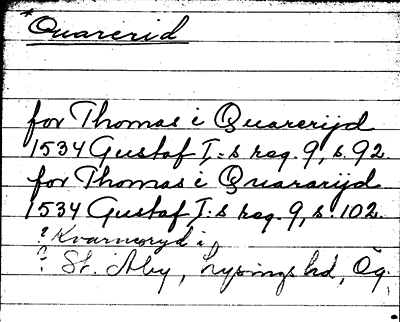 *Quarerid
for Thomas i Quarerijd
1534 Gustaf I:s reg. 9, s. 92.
for Thomas i Quararijd
1534 Gustaf I:s reg. 9, s. 102.
? Kvarneryd i
? St. Åby, Lysings hd, Ög.